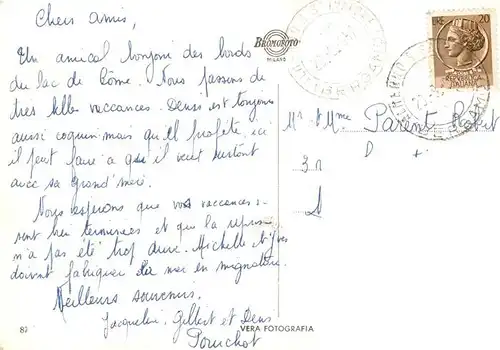 Chers amis,
Un amical bonjour des bords
du lac de Côme. Nous passons de
très belles vaccances. Denis est toujours
aussi coquin mais qu'il profite, ici
il peut faire ce qu'il veut surtout
avec sa grand'mère.
Nous espérons que vos vaccances se
sont bien terminées et que la reprise
n'a pas été trop dure. Michelle et Yves
doivent fabriquer la mer en miniature.
Meilleurs souvenirs.
Jacqueline, Gilbert et Denis
Pouchot
BROMOFOTO
MILANO
LIRE 20
Mr et Mme Parent Robert
82
VERA FOTOGRAFIA